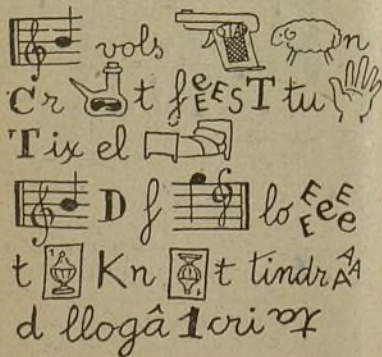 vols n
Cr t f eEEsT tu
T ix el
D f lo EEEeEe
t Kn t tindrÂAA
d llogâ 1 cri ta